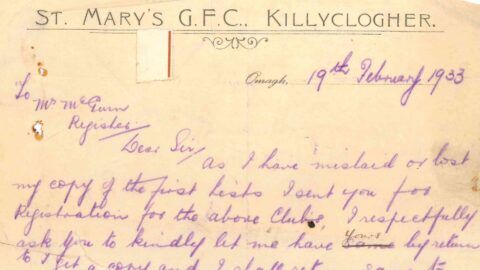 St. Mary's G.F.C., Killyclogher.
Omagh, 19th February 1933
To
Mr McGurn
Register
Dear Sir/
As I have mislaid or lost
my copy of the first lists I sent you for
Registration for the above Clubs, I respectfully
yours
ask you to kindly let me have same by return
to I get a copy and I shall